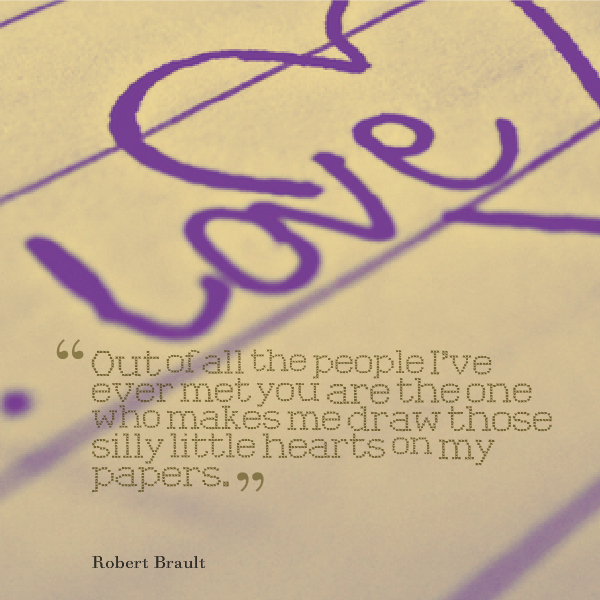 Love
“Out of all the people I've
ever met you are the one
who makes me draw those
silly little hearts on my
papers.”
Robert Brault